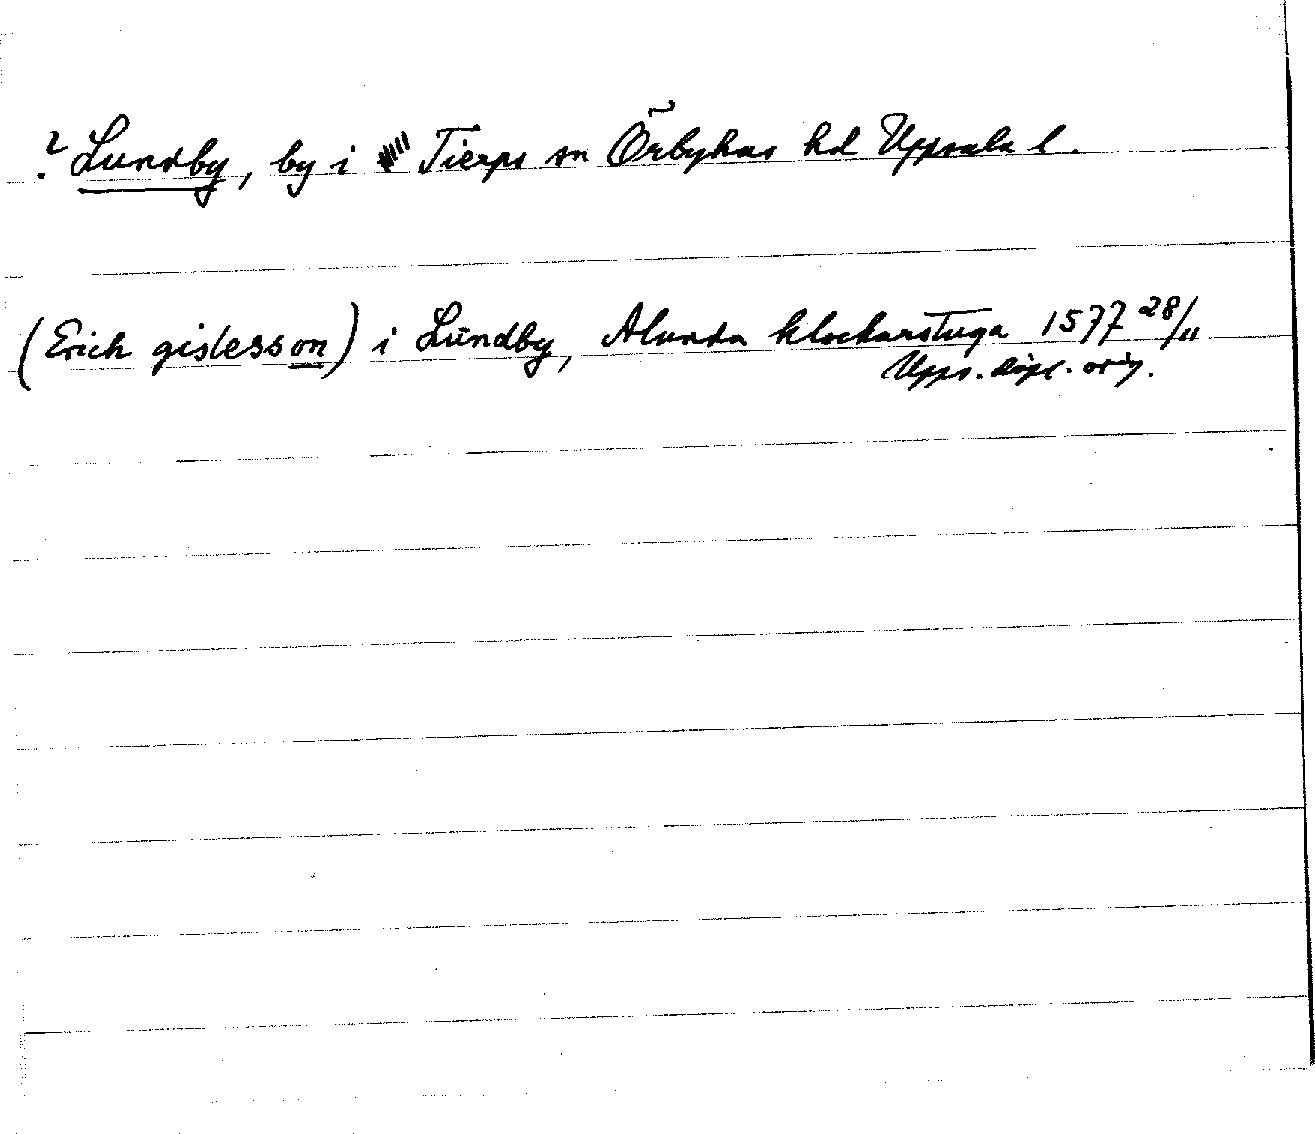 ? Lundby, by i Tierps sn Örbyhus hd Uppsala l.
(Erich gislesson) i Lundby, Alunda klockarstuga 1577 28/11
Upps. dipl. orig.